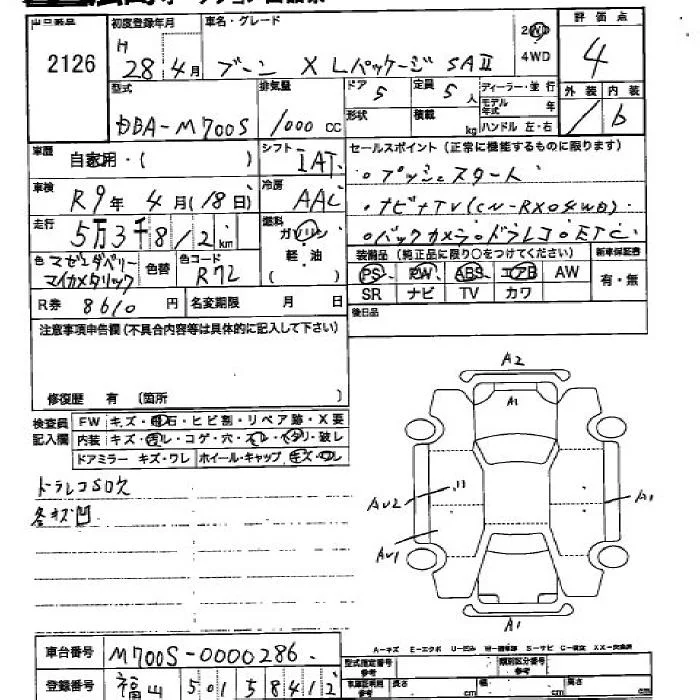 出品番号 初度登録年月 車名・グレード 評価点
2126 H 28年4月 ブーン X Lパッケージ SAⅡ 2WD 4WD 4
外装 内装
型式 排気量 ドア 5 定員 5人 ディーラー・並行
モデル年式 年
DBA-M700S 1000cc 形状 積載 kg ハンドル 左・右 b
車歴 自家用・( ) シフト IAT セールスポイント(正常に機能するものに限ります)
車検 R9年4月(18日) 冷房 AAC 。プッシュスタート
。ナビ+TV(CN-RX04WD)
走行 5万3千812km 燃料 ガソリン 。バックカメラ。ドラレコ。ETC
軽油
( )
色 マゼンタベリーマイカメタリック 色替 色コード R72
装備品(純正品に限り○をつけてください) 新車保証書
PS PW ABS エアB AW 有・無
SR ナビ TV カワ
R券 8610円 名変期限 月 日 後日品
注意事項申告欄(不具合内容等は具体的に記入して下さい)
修復歴 有 (箇所 )
検査員記入欄
FW キズ・飛石・ヒビ割・リペア跡・X要
内装 キズ・汚レ・コゲ・穴・スレ・ヘタリ・破レ
ドアミラー キズ・ワレ ホイール・キャップ キズ・ワレ
ドラレコSD欠
各キズ凹
A2
A1
AU2
A1
AU1
A1
A-キズ E-エクボ U-凹ミ W-補修跡 S-サビ C-腐食 XX-交換済
車台番号 M700S-0000286
型式指定番号 類別区分番号
登録番号 福山 501 5 8412
車庫証明用参考 長さ cm 幅 cm 高さ cm